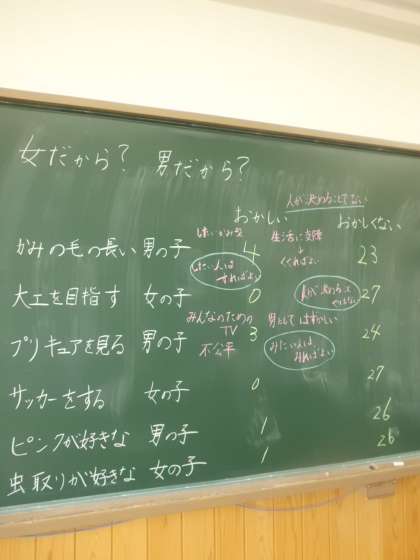 女だから? 男だから?
人が決めることでない
おかしい おかしくない
生活に支障
かみの毛の長い 男の子 4 23
したい人は
すればよい
くくればよい
大工を目指す 女の子 0 27
人が決めること
ではない
みんなのための 男として はずかしい
TV
プリキュアを見る 男の子 3 24
不公平
みたい人は、
みればよい
サッカーをする 女の子 0 27
ピンクが好きな 男の子 1 26
虫取りが好きな 女の子 1 26